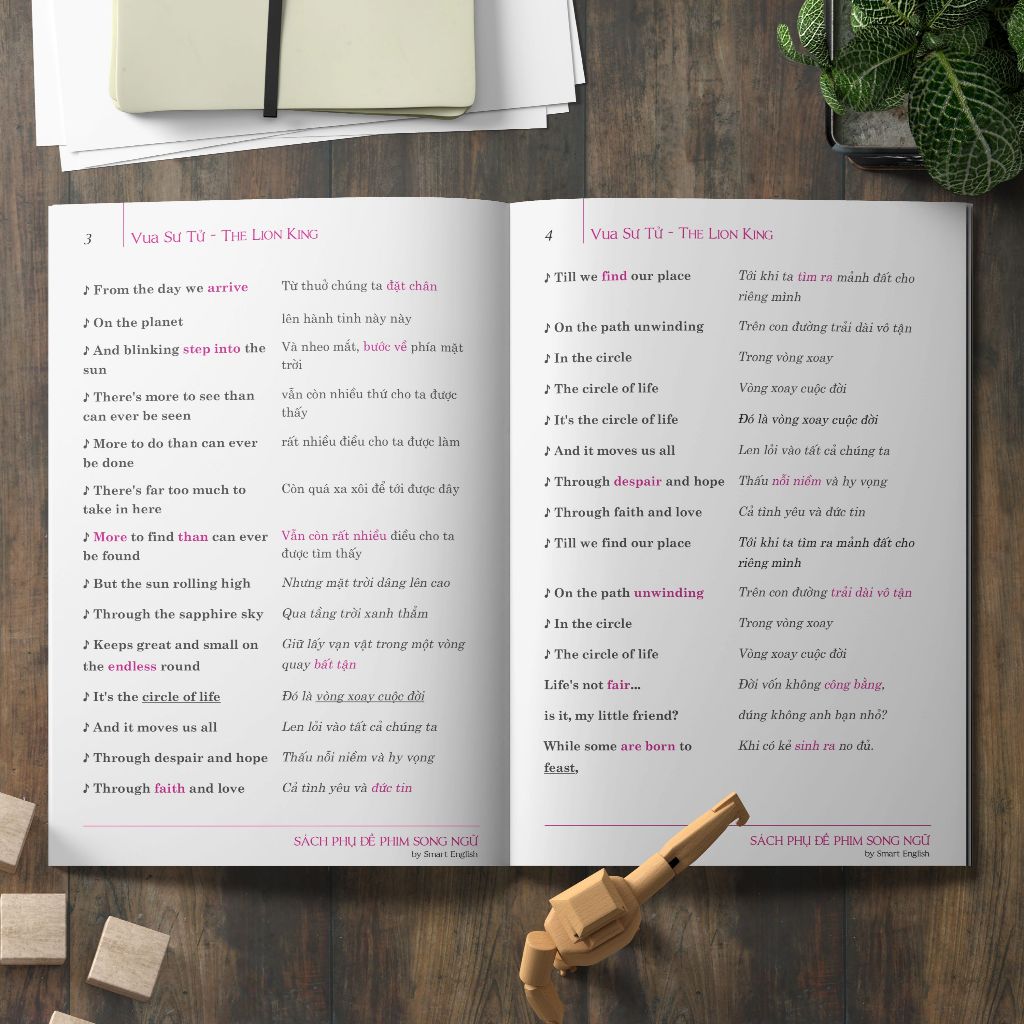 3
Vua Sư Tử - The Lion King
♪ From the day we arrive
Từ thuở chúng ta đặt chân
♪ On the planet
lên hành tinh này này
♪ And blinking step into the
sun
Và nheo mắt, bước về phía mặt
trời
♪ There's more to see than
can ever be seen
vẫn còn nhiều thứ cho ta được
thấy
♪ More to do than can ever
be done
rất nhiều điều cho ta được làm
♪ There's far too much to
take in here
Còn quá xa xôi để tới được đây
♪ More to find than can ever
be found
Vẫn còn rất nhiều điều cho ta
được tìm thấy
♪ But the sun rolling high
Nhưng mặt trời dâng lên cao
♪ Through the sapphire sky
Qua tầng trời xanh thẳm
♪ Keeps great and small on
the endless round
Giữ lấy vạn vật trong một vòng
quay bất tận
♪ It's the circle of life
Đó là vòng xoay cuộc đời
♪ And it moves us all
Len lỏi vào tất cả chúng ta
♪ Through despair and hope
Thấu nỗi niềm và hy vọng
♪ Through faith and love
Cả tình yêu và đức tin
SÁCH PHỤ ĐỀ PHIM SONG NGỮ
by Smart English
4
Vua Sư Tử - The Lion King
♪ Till we find our place
Tới khi ta tìm ra mảnh đất cho
riêng mình
♪ On the path unwinding
Trên con đường trải dài vô tận
♪ In the circle
Trong vòng xoay
♪ The circle of life
Vòng xoay cuộc đời
♪ It's the circle of life
Đó là vòng xoay cuộc đời
♪ And it moves us all
Len lỏi vào tất cả chúng ta
♪ Through despair and hope
Thấu nỗi niềm và hy vọng
♪ Through faith and love
Cả tình yêu và đức tin
♪ Till we find our place
Tới khi ta tìm ra mảnh đất cho
riêng mình
♪ On the path unwinding
Trên con đường trải dài vô tận
♪ In the circle
Trong vòng xoay
♪ The circle of life
Vòng xoay cuộc đời
Life's not fair...
Đời vốn không công bằng,
is it, my little friend?
đúng không anh bạn nhỏ?
While some are born to
feast,
Khi có kẻ sinh ra no đủ.
SÁCH PHỤ ĐỀ PHIM SONG NGỮ
by Smart English